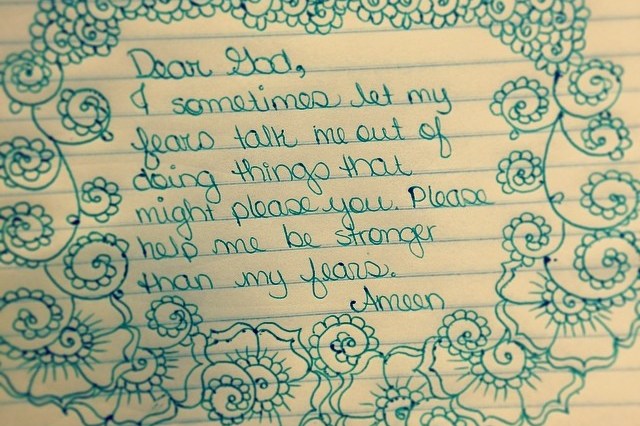 Dear God,
I sometimes let my
fears talk me out of
doing things that
might please you. Please
help me be stronger
than my fears.
Ameen